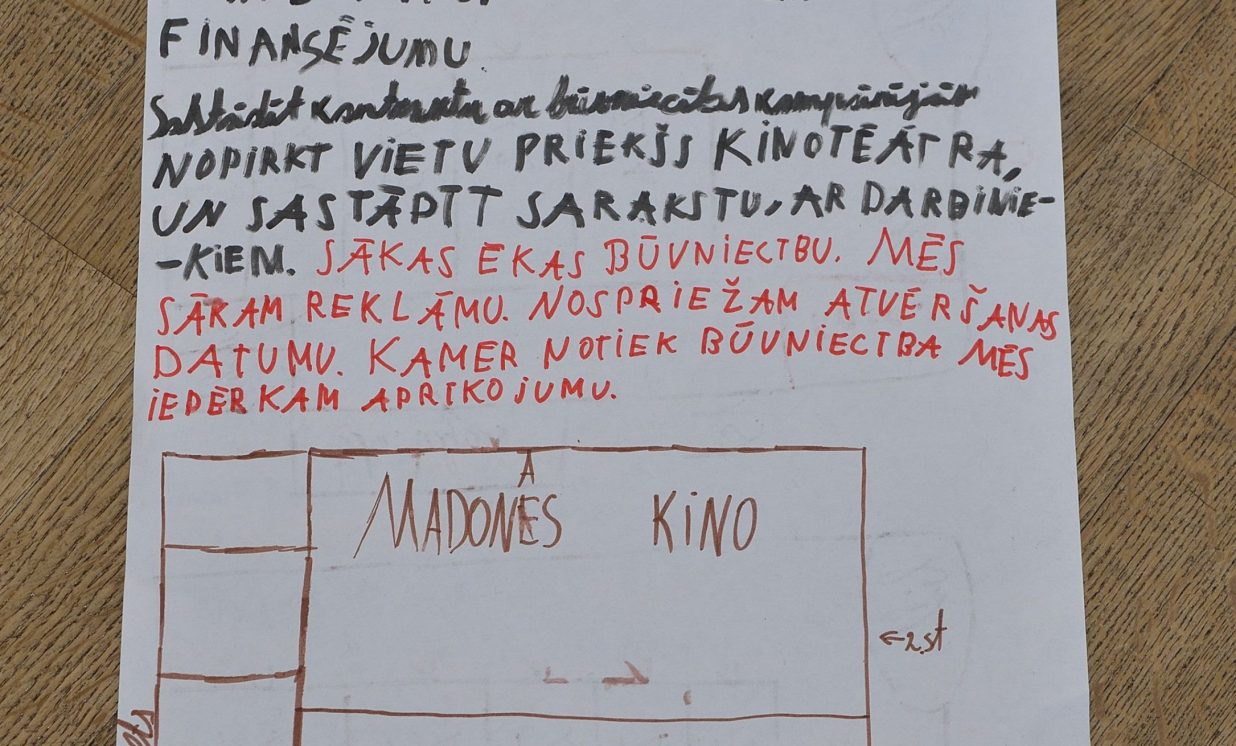 FINANSĒJUMU.
Sastādīt kontraktu ar būvniecības kompānijām
NOPIRKT VIETU PRIEKŠS KINOTĒĀTRA,
UN SASTĀDĪT SARAKSTU, AR DARBINIE-
-KIEM. SĀKAS ĒKAS BŪVNIECĪBU. MĒS
SĀKAM REKLĀMU. NOSPRIEŽAM ATVĒRŠANAS
DATUMU. KAMĒR NOTIEK BŪVNIECĪBA MĒS
IEPĒRKAM APRĪKOJUMU.
A
MADONĒS KINO
←2.st